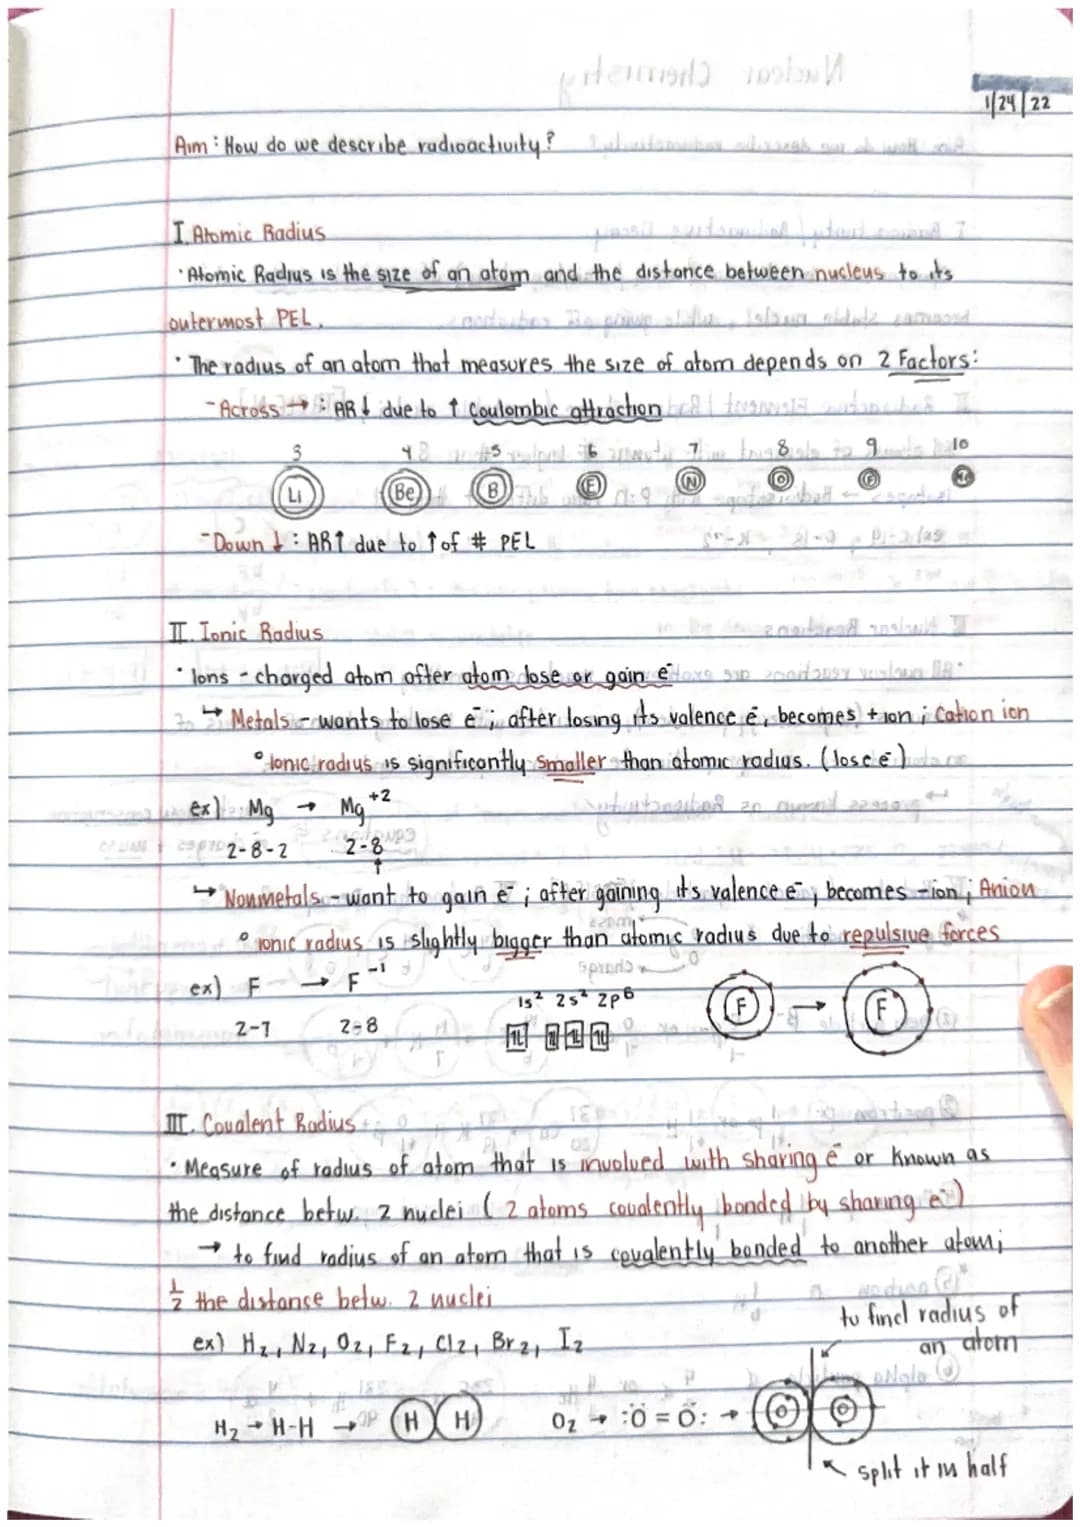 1/24/22
Aim: How do we describe radioactivity?
I. Atomic Radius
· Atomic Radius is the size of an atom and the distance between nucleus to its
outermost PEL.
· The radius of an atom that measures the size of atom depends on 2 Factors:
- Across → : AR↓ due to ↑ Coulombic attraction
3 4 5 6 7 8 9 10
Li Be B N O F Ne
- Down ↓ : AR↑ due to ↑ of # PEL
II. Ionic Radius
· Ions - charged atom after atom lose or gain e⁻
↳ Metals - wants to lose e⁻; after losing its valence e⁻, becomes + ion; Cation ion
° Ionic radius is significantly smaller than atomic radius. (lose e⁻)
ex) Mg → Mg⁺²
2-8-2 2-8
↳ Nonmetals - want to gain e⁻; after gaining its valence e⁻, becomes - ion; Anion
° ionic radius is slightly bigger than atomic radius due to repulsive forces
ex) F → F⁻¹
1s² 2s² 2p⁶
F → F
2-7 2-8
III. Covalent Radius
· Measure of radius of atom that is involved with sharing e⁻ or known as
the distance betw. 2 nuclei (2 atoms covalently bonded by sharing e⁻)
→ to find radius of an atom that is covalently bonded to another atom;
½ the distance betw. 2 nuclei
to find radius of
ex) H₂, N₂, O₂, F₂, Cl₂, Br₂, I₂
an atom
H₂ → H-H → H H O₂ → :Ö = Ö: → O O
split it in half